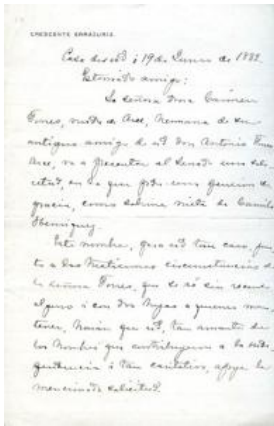 CRECENTE ERRAZURIZ.
Casa de Ud i 19 de Junio de 1882.
Estimado amigo:
La señora Doña Carmen
Torres, viuda de Arce, hermana de su
antiguo amigo de Ud Don Antonio Torres
Arce, va a presentar al Senado una soli-
citud, en la que pide como pension de
gracia, como sobrina nieta de Camilo
Henriquez.
Este nombre, para Ud tan caro, jun-
to a las circunstancias de
la señora Torres, que se ve sin recurso
alguno i con dos hijas a quienes man-
tener, harán que Ud, tan amante de
los hombres que contribuyeron a la inde-
pendencia i tan caritativo, apoye la
mencionada solicitud.